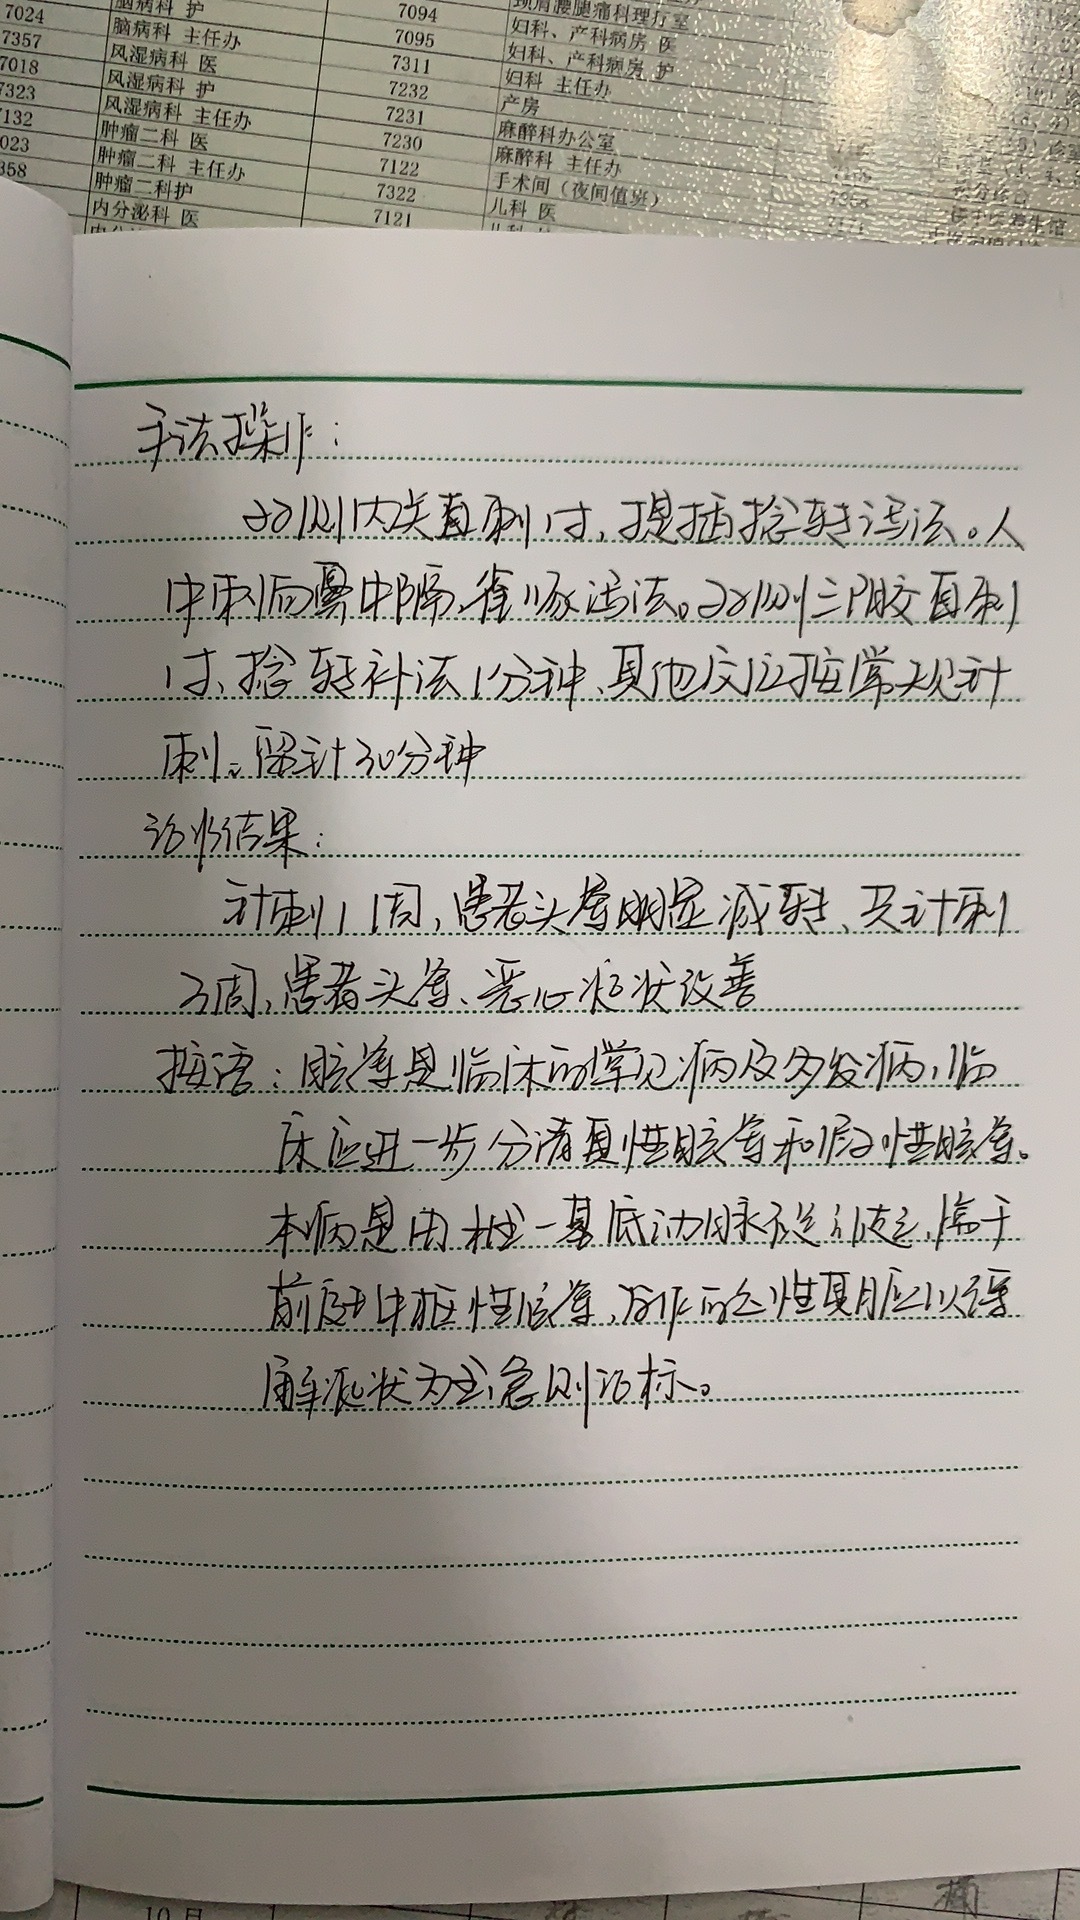 脑病科 护
7024 脑病科 主任办 7094 颈肩腰腿痛科理疗室
7357 风湿病科 医 7095 妇科、产科病房 医
7018 风湿病科 护 7311 妇科、产科病房 护
7323 风湿病科 主任办 7232 妇科 主任办
7132 肿瘤二科 医 7231 产房
023 肿瘤二科 主任办 7230 麻醉科办公室
358 肿瘤二科护 7122 麻醉科 主任办
内分泌科 医 7322 手术间（夜间值班）
7121 儿科 医
手法操作：
双侧内关直刺1寸，提插捻转泻法。人
中刺向鼻中隔、雀啄泻法。双侧三阴交直刺
1寸、捻转补法1分钟、其他穴位按常规针
刺。留针30分钟
治疗结果：
针刺1周，患者头晕明显减轻、又针刺
3周，患者头晕、恶心症状改善
按语：眩晕是临床的常见病及多发病，临
床应进一步分清真性眩晕和假性眩晕。
本病是由椎一基底动脉不足引起，属于
前庭中枢性眩晕、发作的急性期应以缓
解症状为主，急则治标。
10月